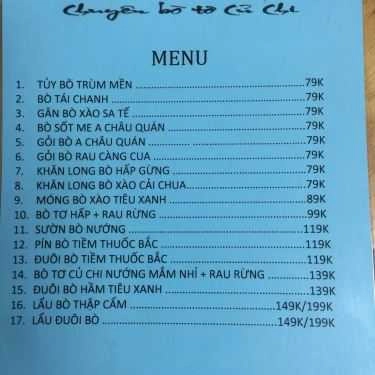 Chuyên bò tơ Củ Chi
MENU
1. TỦY BÒ TRÙM MỀN ........ 79K
2. BÒ TÁI CHANH ........ 79K
3. GÂN BÒ XÀO SA TẾ ........ 79K
4. BÒ SỐT ME A CHÂU QUÁN ........ 79K
5. GỎI BÒ A CHÂU QUÁN ........ 79K
6. GỎI BÒ RAU CÀNG CUA ........ 79K
7. KHĂN LONG BÒ HẤP GỪNG ........ 79K
8. KHĂN LONG BÒ XÀO CẢI CHUA ........ 79K
9. MÓNG BÒ XÀO TIÊU XANH ........ 89K
10. BÒ TƠ HẤP + RAU RỪNG ........ 99K
11. SƯỜN BÒ NƯỚNG ........ 119K
12. PÍN BÒ TIỀM THUỐC BẮC ........ 119K
13. ĐUÔI BÒ TIỀM THUỐC BẮC ........ 119K
14. BÒ TƠ CỦ CHI NƯỚNG MẮM NHỈ + RAU RỪNG ........ 139K
15. ĐUÔI BÒ HẦM TIÊU XANH ........ 139K
16. LẨU BÒ THẬP CẨM ........ 149K/199K
17. LẨU ĐUÔI BÒ ........ 149K/199K